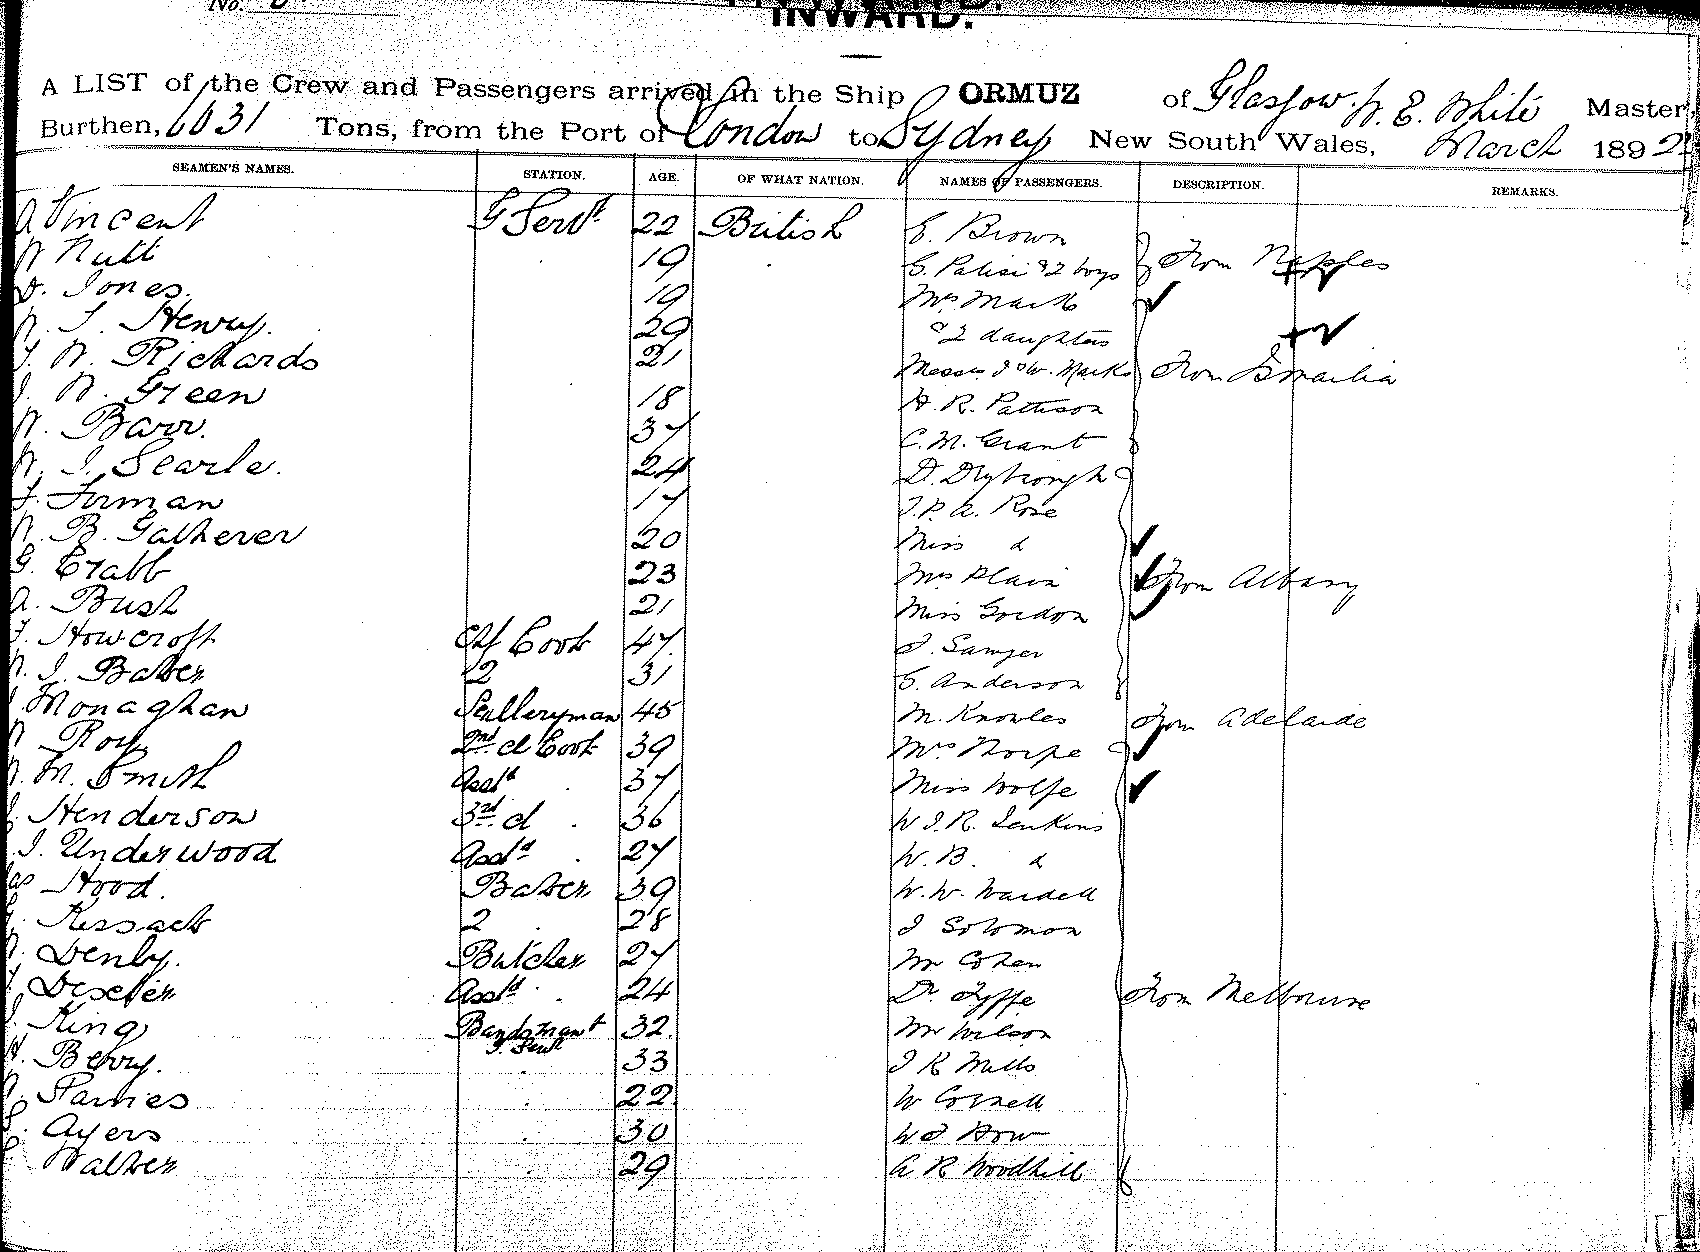 No.
INWARD.
A LIST of the Crew and Passengers arrived in the Ship ORMUZ of Glasgow. W. E. White Master,
Burthen, 6031 Tons, from the Port of London to Sydney New South Wales, March 1892
SEAMEN'S NAMES. STATION. AGE. OF WHAT NATION. NAMES OF PASSENGERS. DESCRIPTION. REMARKS.
A Vincent G Servt. 22 British E. Brown
W Nutt 19 Palisi & 2 boys From Naples
D. Jones. 19 Mrs Marks
Henry. 29 & 2 daughters
W. Richards 21 Messrs J & W. Marks From Ismailia
W. Green 18 H. R. Pattison
Barr. 37 C. M. Grant
J. Searle. 24 D. Drybrough
Forman 17 J. P. A. Rose
B. Gatherer 20 Miss d
G. Crabb 23 Mrs Plain From Albany
A. Bush 21 Miss Gordon
Howcroft Chf Cook 47 J. Sawyer
J. Baker 2 31 Anderson
Monaghan Sculleryman 45 M. Knowles From Adelaide
Roy 2nd cl Cook 39 Mrs Thorpe
M. Smith Asst 37 Miss Wolfe
Henderson 3rd cl 36 W J. R. Jenkins
J. Underwood Asst 27 W. B. d
Hood. Baker 39 W. W. Wardell
Kissack 2 28 J Solomon
Denby. Butcher 27 Mr Cohen
Dexter Asst 24 Dr Fyffe From Melbourne
King Bandsman & 32. Mr Wilson
G. Servt
Berry. 33 J R Mills
Parnies 22 W Cornell
Ayers 30 W J How
Walker 29 A R Woodhill